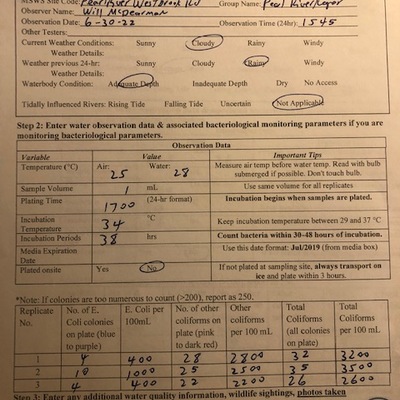 MSWS Site Code: Pearl River Westbrook Rd Group Name: Pearl River
Observer Name: Will McDearman
Observation Date: 6-30-22 Observation Time (24hr): 1545
Other Testers:
Current Weather Conditions: Sunny Cloudy Rainy Windy
Weather Details:
Weather previous 24-hr: Sunny Cloudy Rainy Windy
Weather Details:
Waterbody Condition: Adequate Depth Inadequate Depth Dry No Access
Tidally Influenced Rivers: Rising Tide Falling Tide Uncertain Not Applicable
Step 2: Enter water observation data & associated bacteriological monitoring parameters if you are
monitoring bacteriological parameters.
Observation Data
Variable Value Important Tips
Temperature (°C) Air: 25 Water: 28 Measure air temp before water temp. Read with bulb
submerged if possible. Don't touch bulb.
Sample Volume 1 mL Use same volume for all replicates
Plating Time 1700 (24-hr format) Incubation begins when samples are plated.
Incubation
Temperature 34 °C Keep incubation temperature between 29 and 37 °C
Incubation Periods 38 hrs Count bacteria within 30-48 hours of incubation.
Media Expiration
Date Use this date format: Jul/2019 (from media box)
Plated onsite Yes No If not plated at sampling site, always transport on
ice and plate within 3 hours.
*Note: If colonies are too numerous to count (>200), report as 250.
Replicate No. of E. E. Coli per No. of other Other Total Total
No. Coli colonies 100mL coliforms on coliforms Coliforms Coliforms
on plate (blue plate (pink per 100 mL (all colonies per 100 mL
to purple) to dark red) on plate)
1 4 400 28 2800 32 3200
2 10 1000 25 2500 35 3500
3 4 400 22 2200 26 2600
Step 3: Enter any additional water quality information, wildlife sightings, photos taken